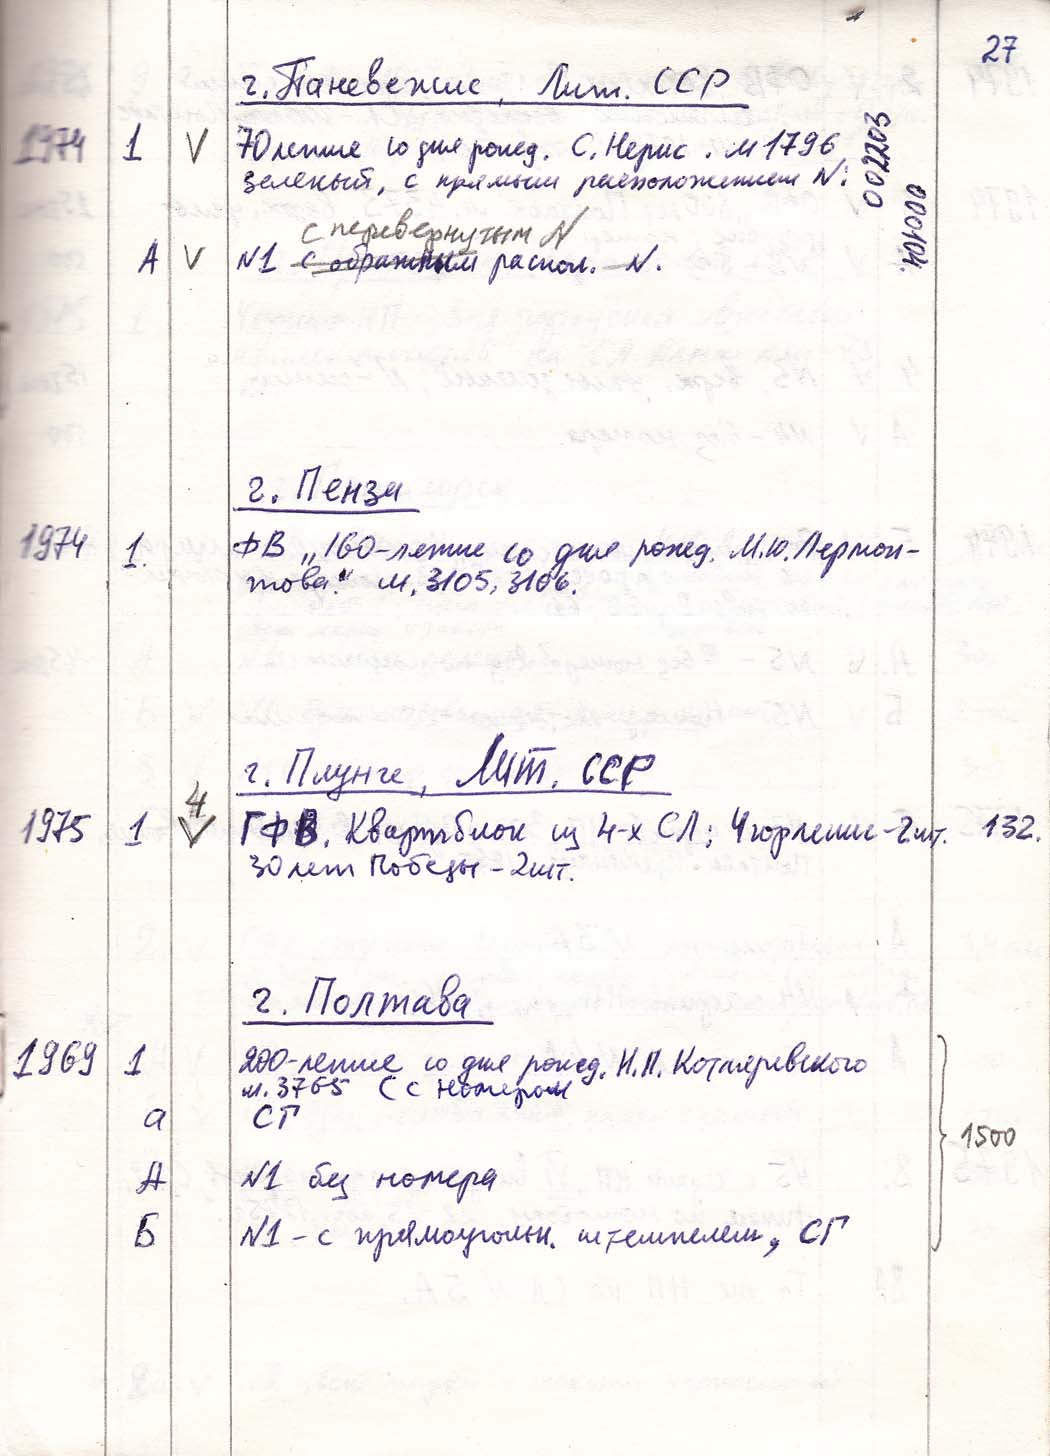 27
г. Паневежис, Лит. ССР
1974 1 V 70летие со дня рожд. С. Нерис. м 1796,
зеленый, с прямым расположением N:
002203
000104.
с перевернутым N
А V N1 с обратным распол. N.
г. Пенза
1974 1. ФВ „160-летие со дня рожд. М.Ю. Лермон-
това." м. 3105, 3106.
г. Плунге, Лит. ССР
4
1975 1 V ГФВ. Квартблок из 4-х СЛ; Чюрленис-2шт. 132.
30 лет Победы - 2шт.
г. Полтава
1969 1 200-летие со дня рожд. И.П. Котляревского
м. 3765 (с номером
а СГ
А N1 без номера
1500
Б N1 - с прямоугольн. штемпелем, СГ